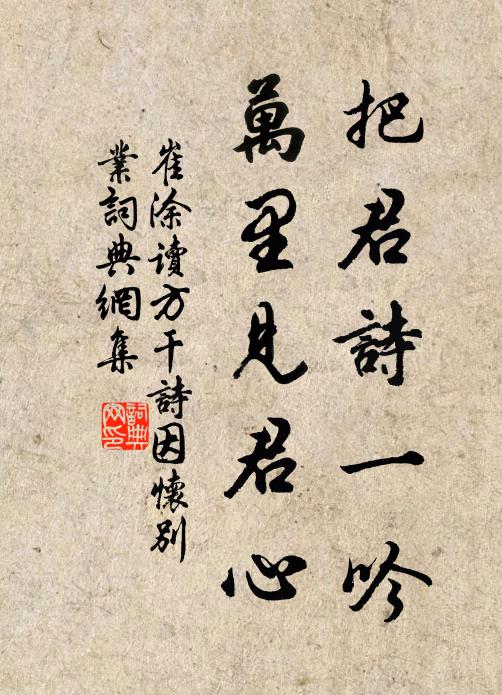 把君詩一吟
萬里見君心
崔涂讀方干詩因懷別
業詞典網集
詞典
网印